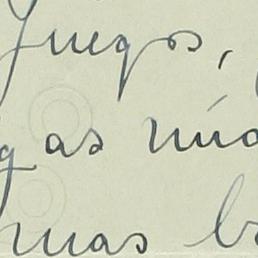 Juegos,
gas mía
mas b